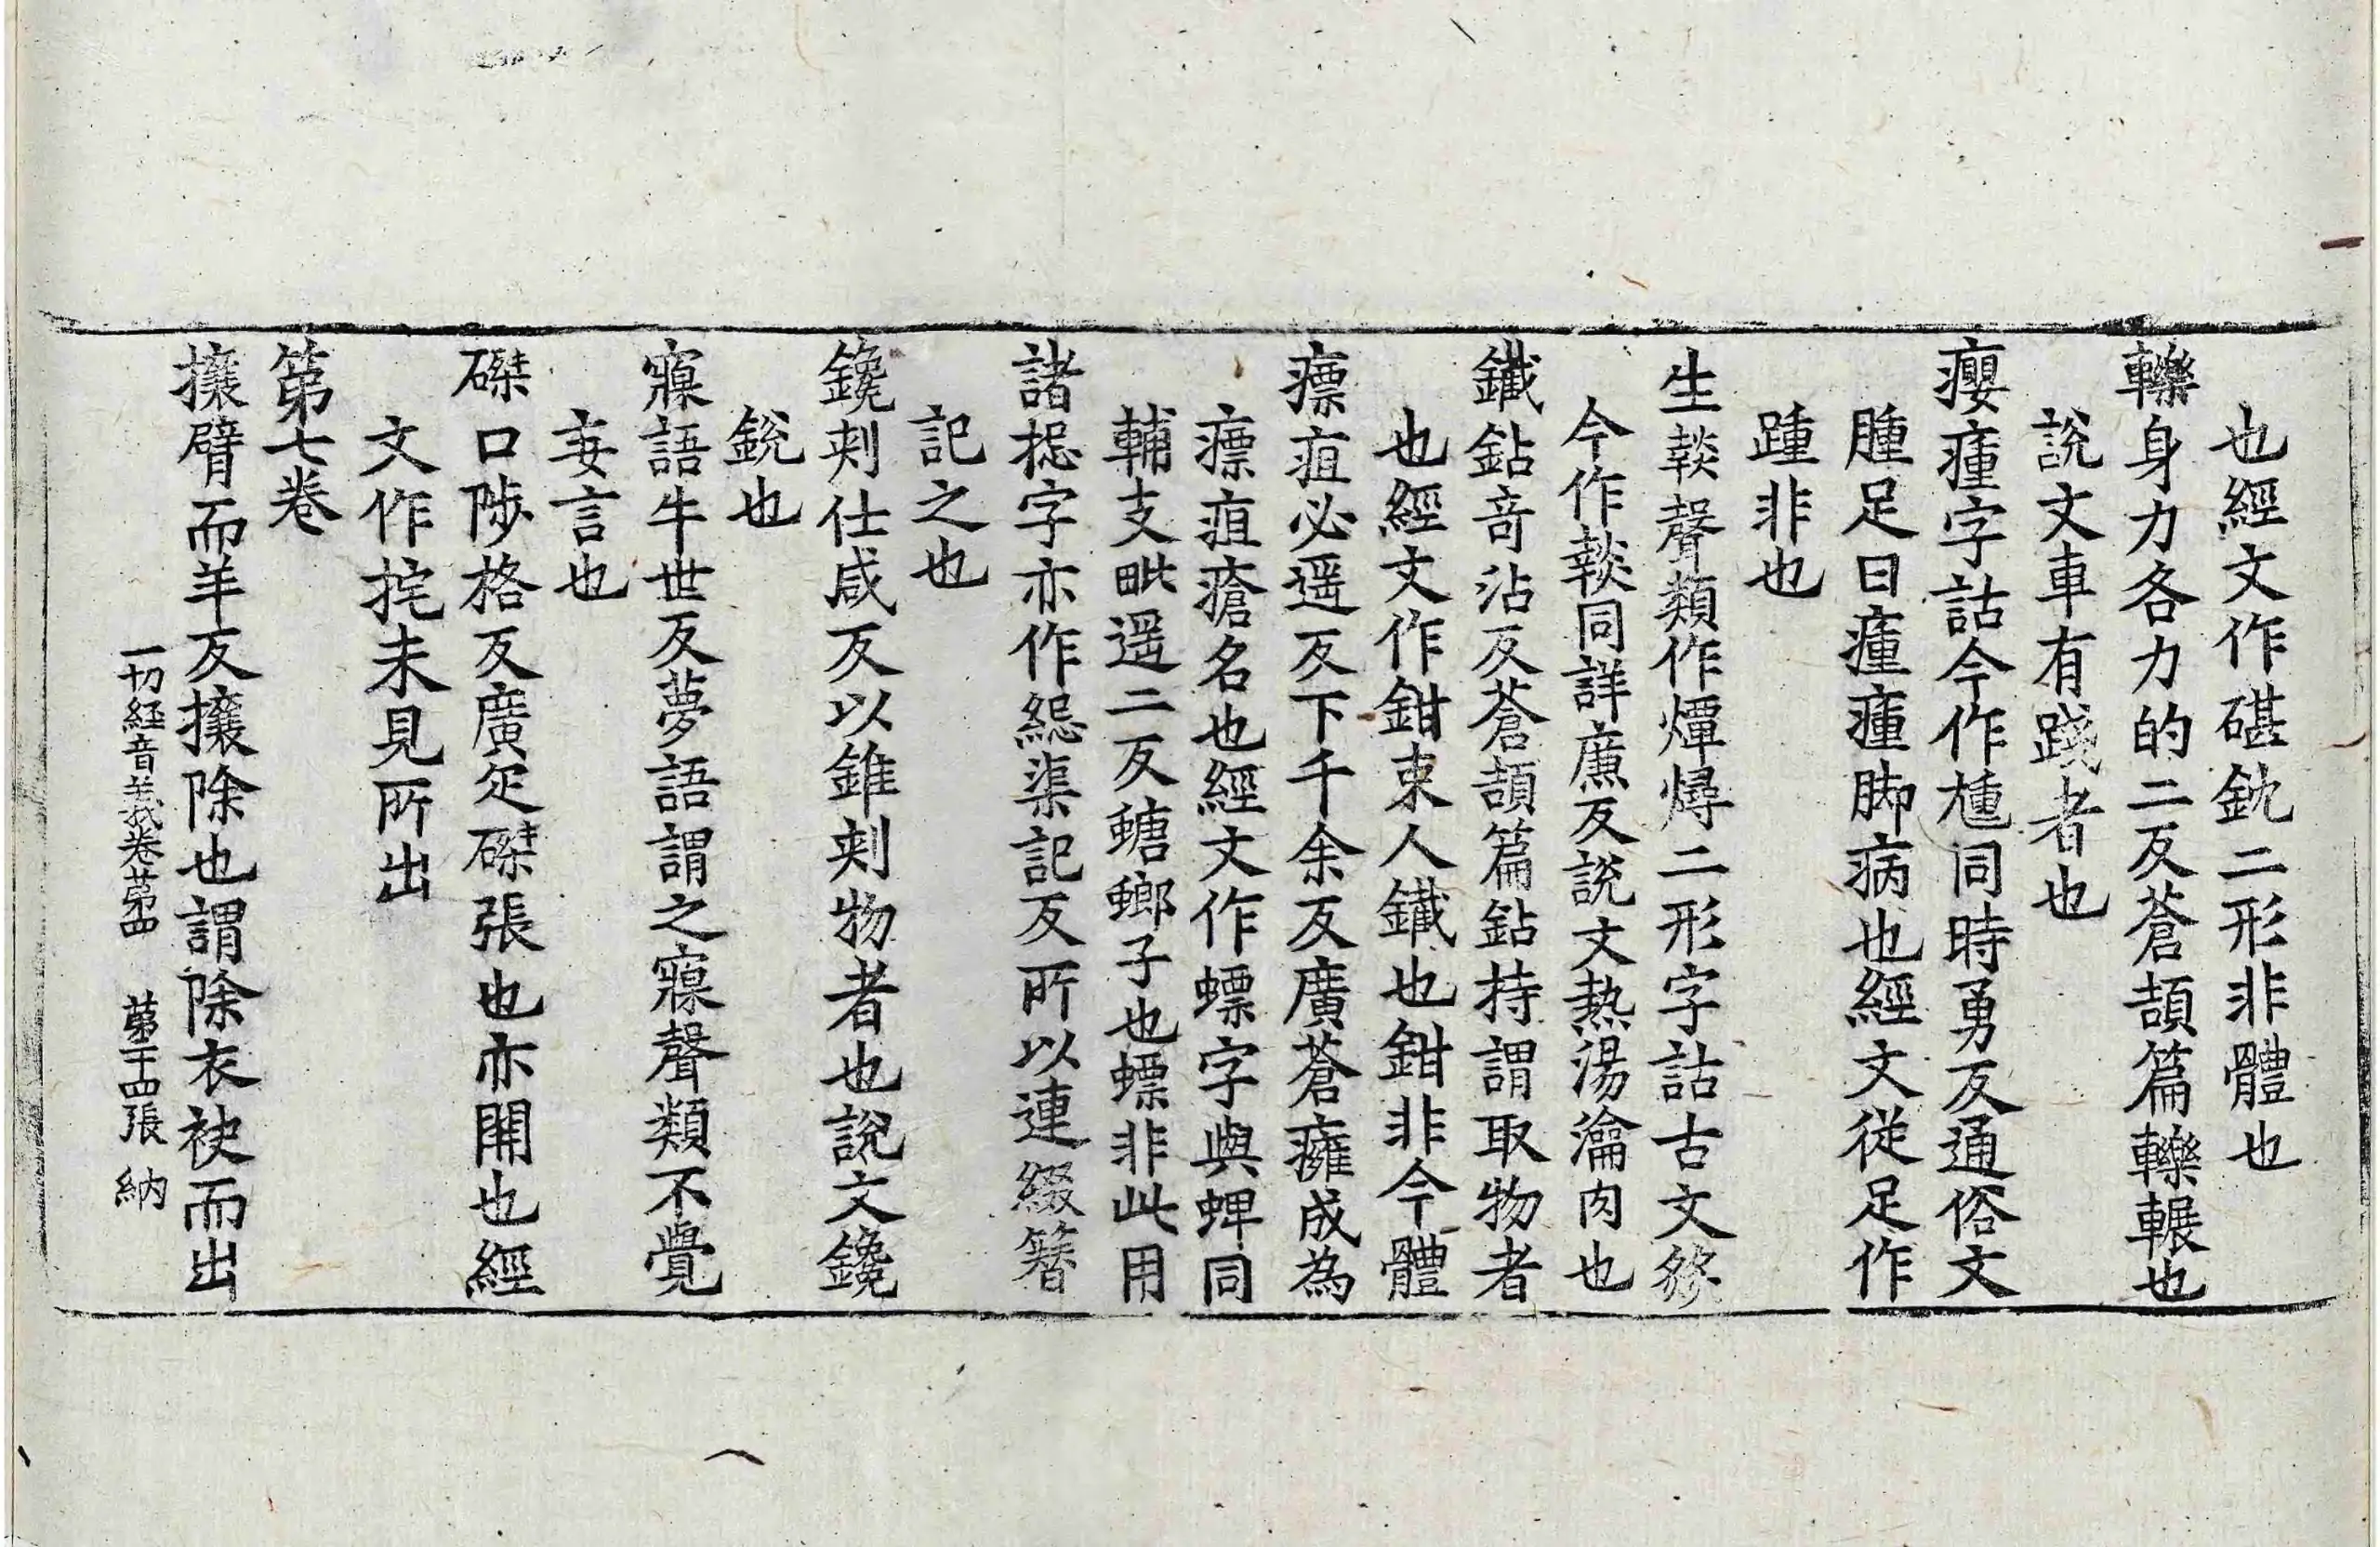 也經文作碪鈂二形非體也
轢身力各力的二反蒼頡篇轢輾也
說文車有踐者也
癭瘇字詁今作尰同時勇反通俗文
腫足曰瘇瘇脚病也經文從足作
踵非也
生燅聲類作燂燖二形字詁古文
今作燅同詳廉反說文熱湯瀹肉也
鑯鉆奇沾反蒼頡篇鉆持謂取物者
也經文作鉗束人鑯也鉗非今體
瘭疽必遥反下千余反廣蒼癰成為
瘭疽瘡名也經文作螵字與蜱同
輔支毗遥二反螗螂子也螵非此用
諸捴字亦作緫渠記反所以連綴簪
記之也
鑱刾仕咸反以錐刾物者也說文鑱
銳也
寱語牛世反夢語謂之寱聲類不覺
妄言也
磔口陟格反廣疋磔張也亦開也經
文作挓未見所出
第七卷
攘臂而羊反攘除也謂除衣袂而出
一切經音義卷第四 第二十四張 納